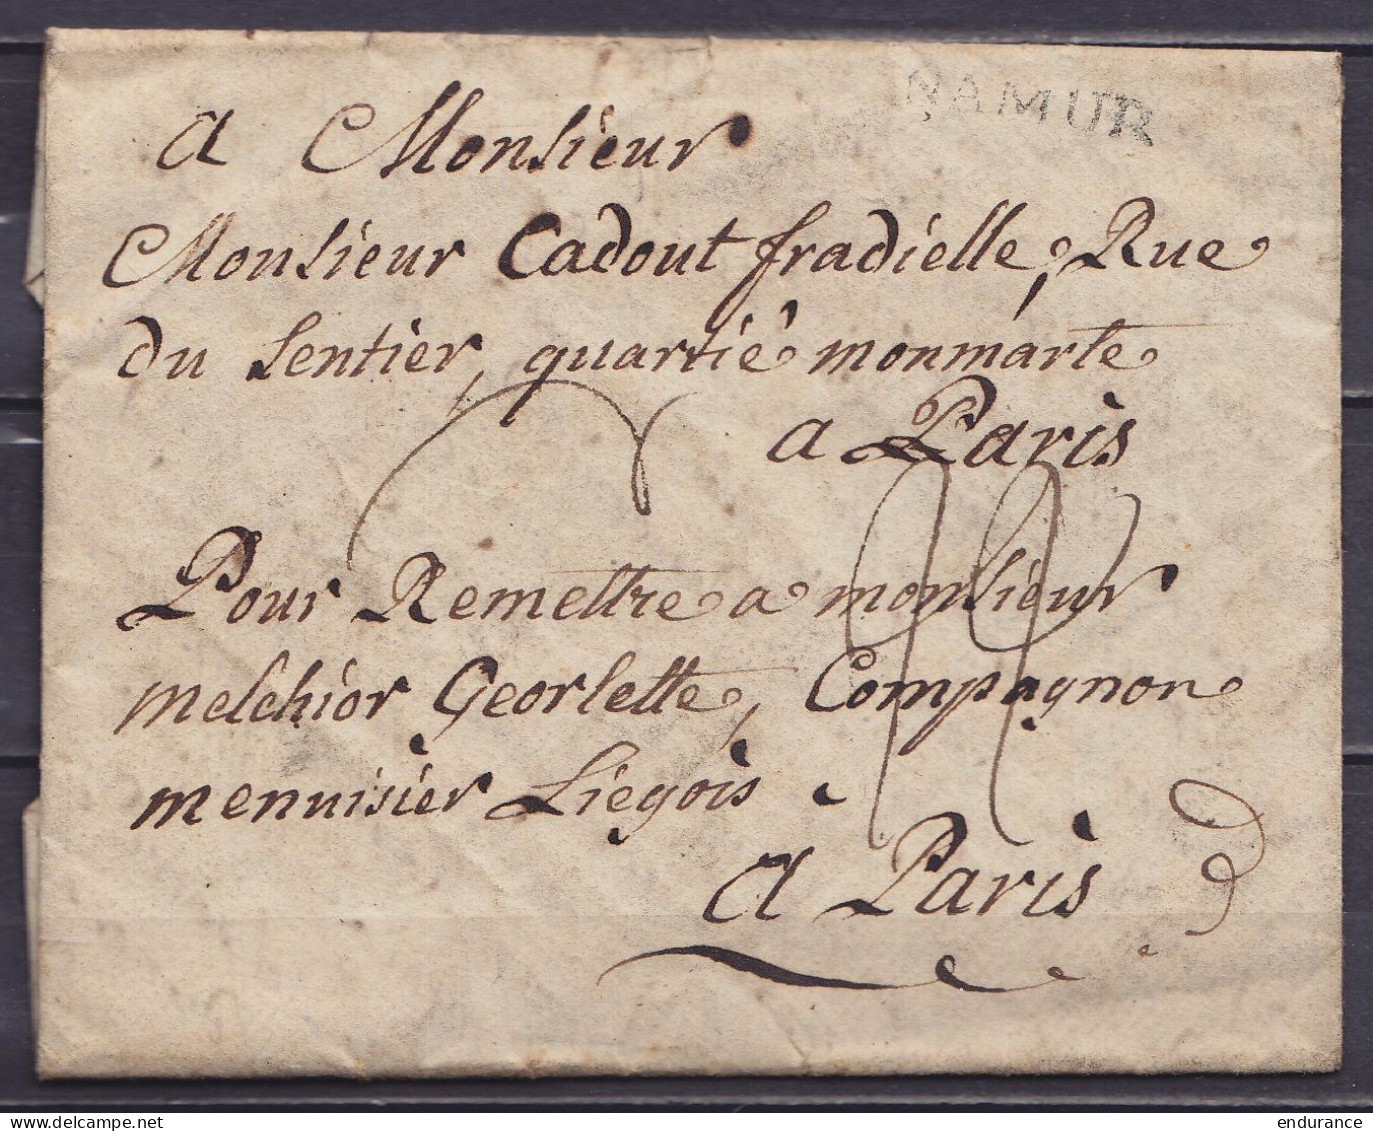 NAMUR
a Monsieur
Monsieur Cadout fradielle, Rue
du Sentier, quartié monmarte
a Paris
Pour Remettre a monsieur
melchior Georlette, Compagnon
menuisier Liegois
a Paris
endurance